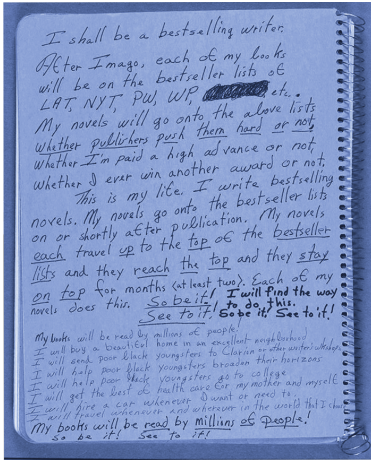 I shall be a bestselling writer.
After Imago, each of my books
will be on the bestseller lists of
LAT, NYT, PW, WP, etc.
My novels will go onto the above lists
whether publishers push them hard or not,
whether I'm paid a high advance or not,
whether I ever win another award or not.
This is my life. I write bestselling
novels. My novels go onto the bestseller lists
on or shortly after publication. My novels
each travel up to the top of the bestseller
lists and they reach the top and they stay
on top for months (at least two). Each of my
novels does this. So be it! I will find the way
to do this.
See to it! So be it! See to it!
My books will be read by millions of people!
I will buy a beautiful home in an excellent neighborhood
I will send poor black youngsters to Clarion or other writer's workshops
I will help poor black youngsters broaden their horizons
I will help poor black youngsters go to college
I will get the best of health care for my mother and myself
I will hire a car whenever I want or need to.
I will travel whenever and wherever in the world that I choose
My books will be read by millions of people!
So be it! See to it!